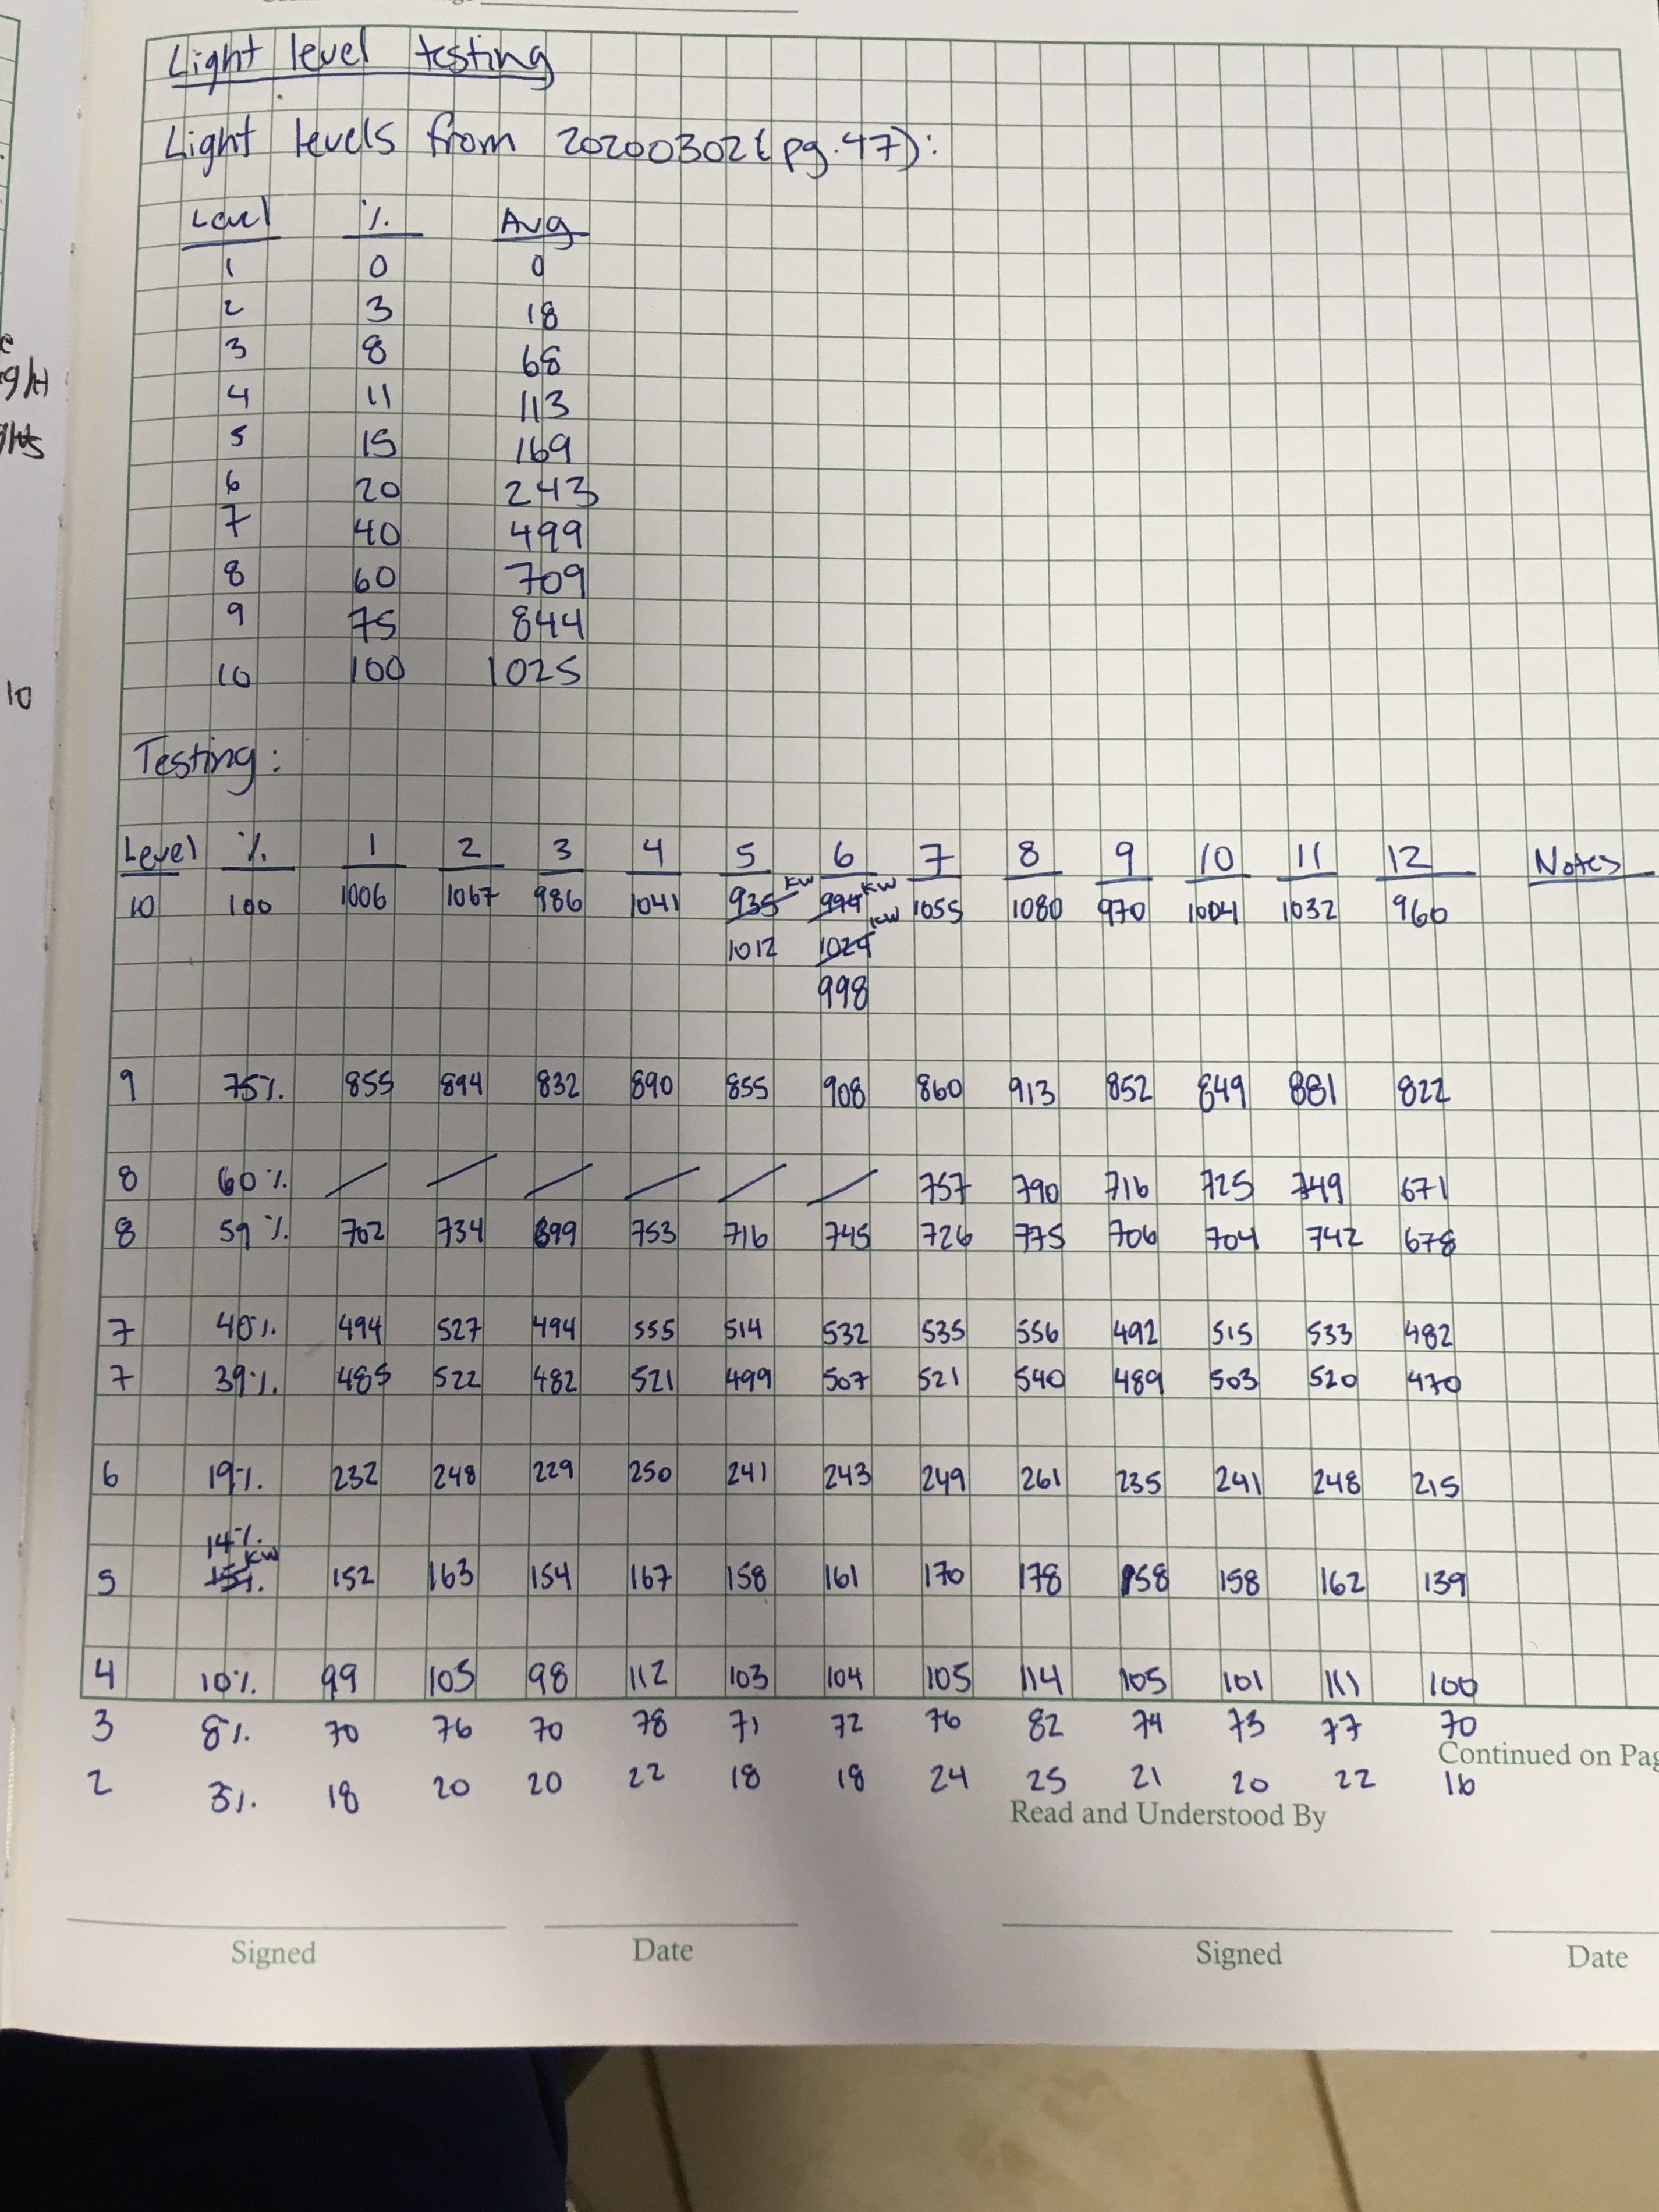 Light level testing
Light levels from 20200302 (pg.47):
Level % Avg
1 0 0
2 3 18
3 8 68
4 11 113
5 15 169
6 20 243
7 40 499
8 60 709
9 75 844
10 100 1025
10
Testing:
Level % 1 2 3 4 5 6 7 8 9 10 11 12 Notes
10 100 1006 1067 986 1041 935 KW 994 KW 1055 1080 970 1004 1032 960
1012 1024 KW
998
9 75% 855 894 832 890 855 908 860 913 852 849 881 822
8 60% / / / / / / 757 790 716 725 749 671
8 59% 702 734 699 753 716 745 726 775 706 704 742 678
7 40% 494 527 494 555 514 532 535 556 492 515 533 482
7 39% 485 522 482 521 499 507 521 540 489 503 520 470
6 19% 232 248 229 250 241 243 249 261 235 241 248 215
14%
KW
5 15% 152 163 154 167 158 161 170 178 158 158 162 139
4 10% 99 105 98 112 103 104 105 114 105 101 111 100
3 8% 70 76 70 78 71 72 76 82 74 73 77 70
Continued on Pag
2 3% 18 20 20 22 18 18 24 25 21 20 22 16
Read and Understood By
Signed Date Signed Date